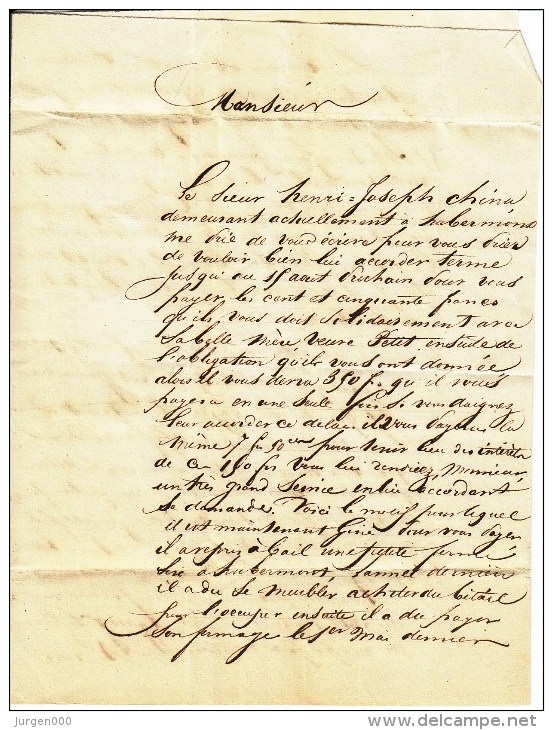 Monsieur
Le sieur henri=Joseph china
demeurant actuellement à hubermont
me prie de vous écrire pour vous prier
de vouloir bien lui accorder terme
jusqu'au 15 aout prochain pour vous
payer, les cent et cinquante francs
qu'ils vous doit solidairement avec
sa belle mère veuve Petit ensuite de
l'obligation qu'ils vous ont donnée
alors il vous devra 350 f. qu'il vous
payera en une seule fois si vous daignez
leur accorder ce delai il vous payera la
même 7 fr 50 pour tenir lieu des intérêts
de ce 150 frs vous lui rendriez, Monsieur
un très grand Service en lui accordant
sa demande. Voici le motif pour lequel
il est maintenant Gêné pour vous payer
il a repris à bail une petite ferme
sise à hubermont, l'année dernière
il a du se meubler acheter du bétail
pour l'occuper ensuite il a du payer
son fermage le 1er Mai dernier
Jurgen000
delcampe.net